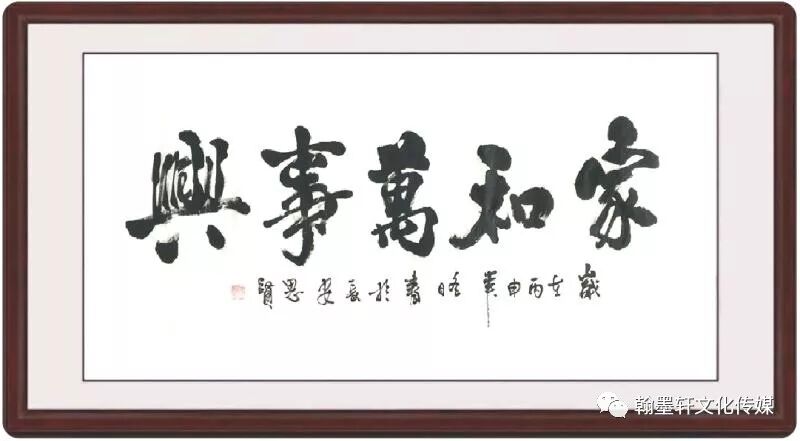 家和萬事興
歲在丙申書於長安思賢
翰墨轩文化传媒